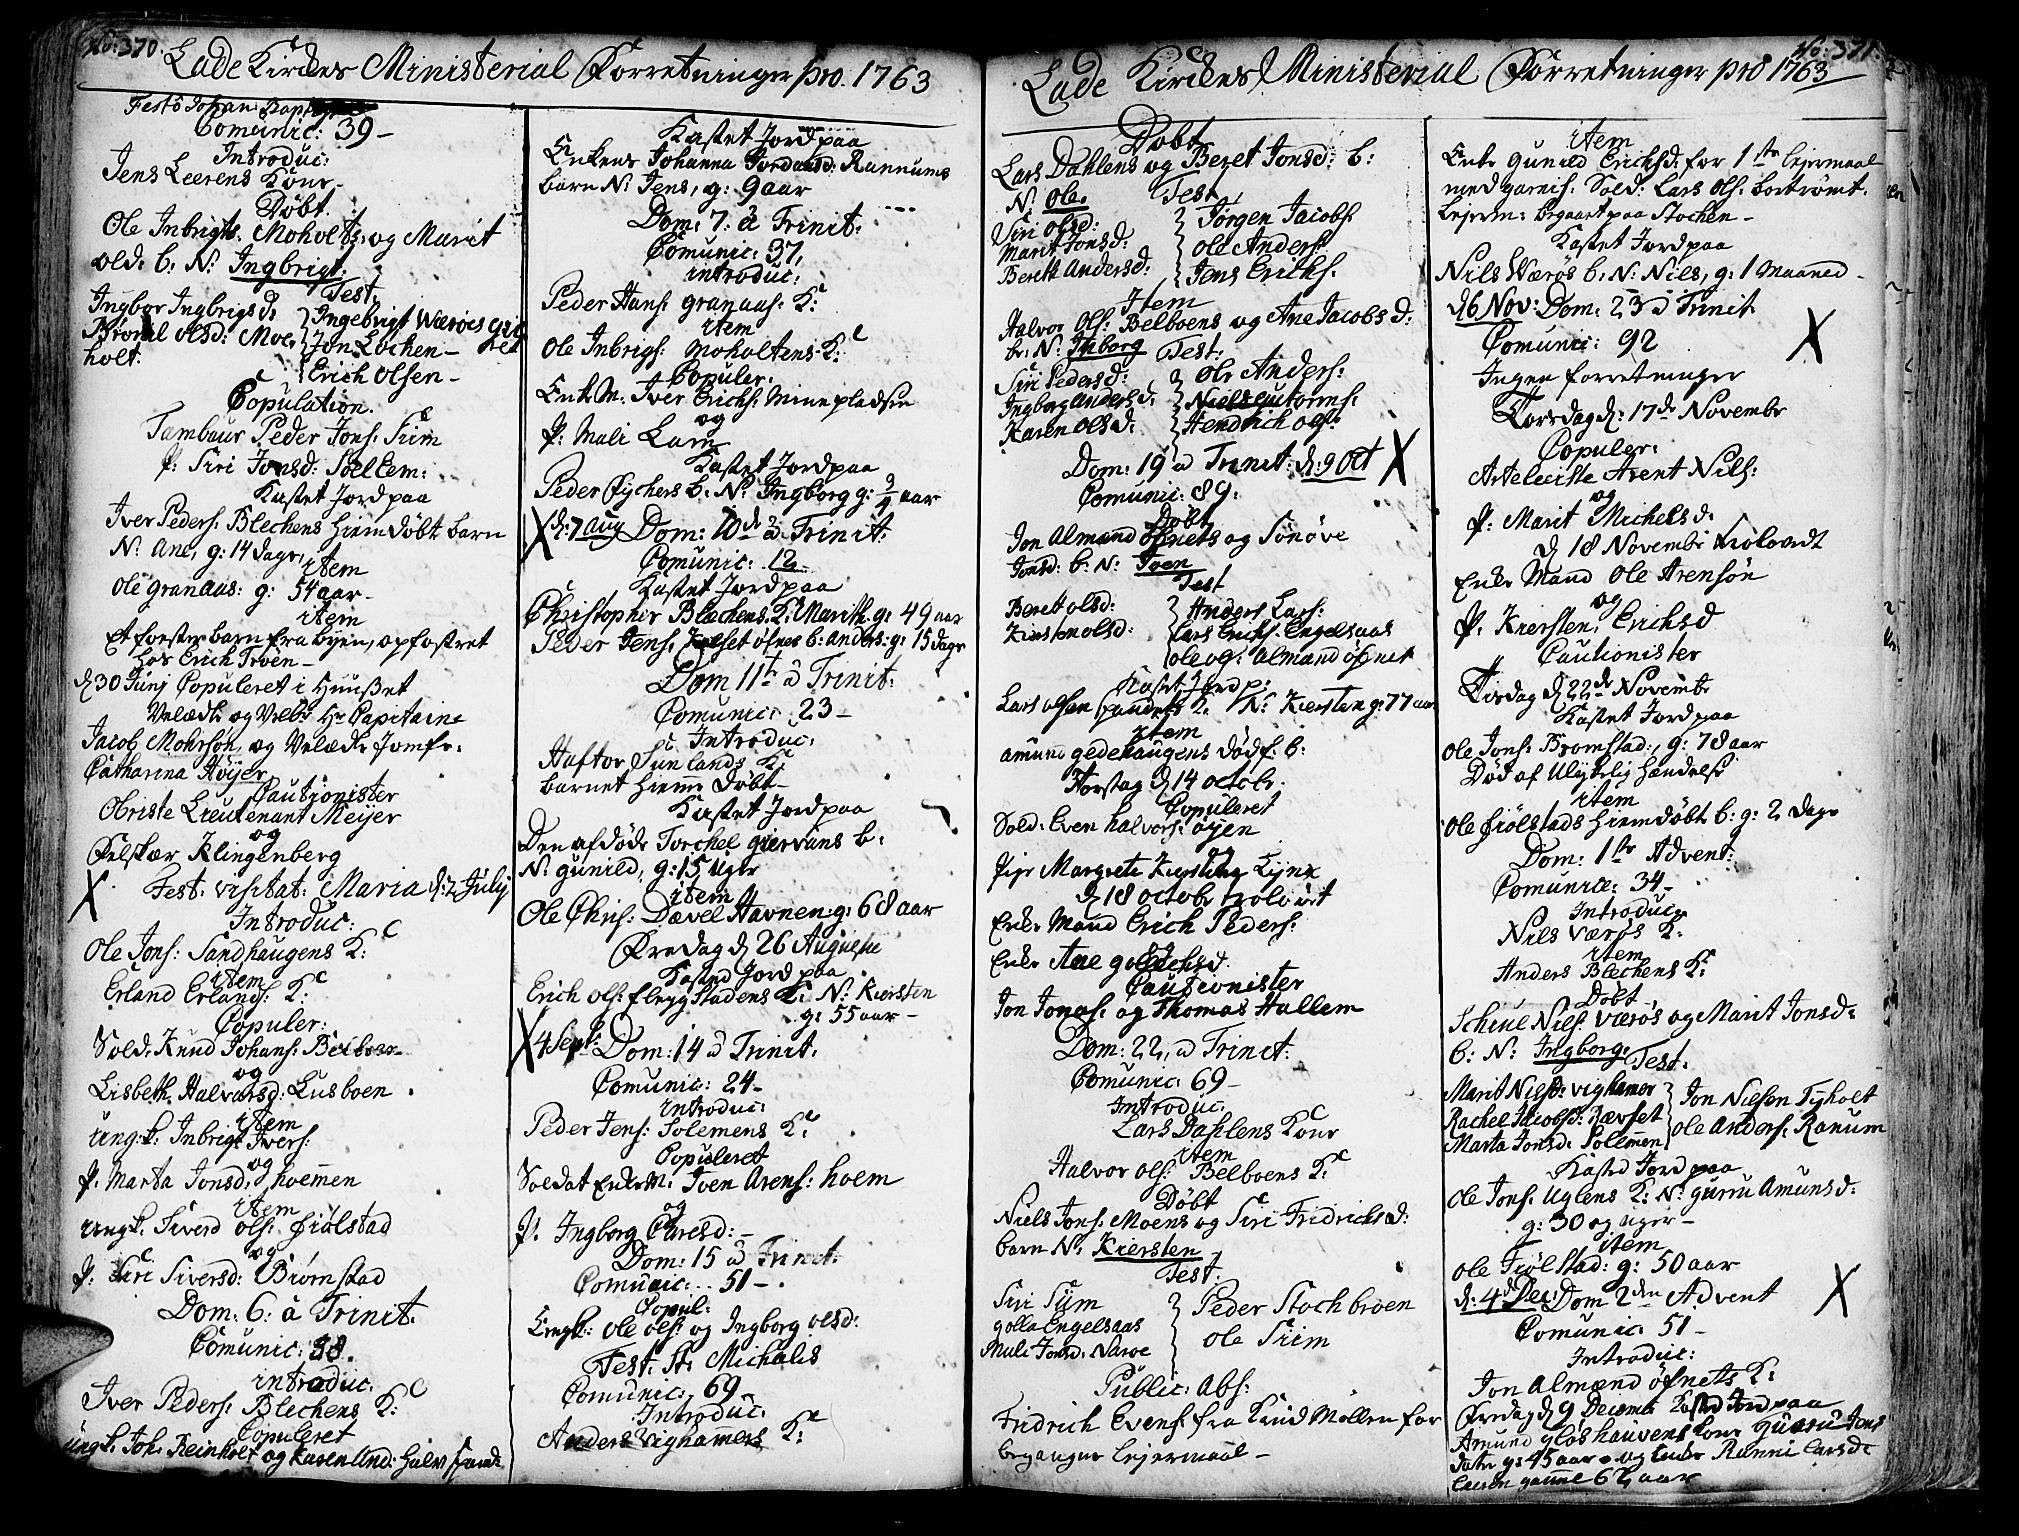 No: 370.
Lade Kirckes Ministerial Forretninger pro. 1763
Festo Johan: Bapt
Comunic: 39-
Introduc:
Jens Leerens Kone-
Døbt.
Ole Inbrigts. Moholts, og Marit
olsd. b: N: Ingbrigt.
Test.
Ingbor Ingbrigsd.
Ingebrigt Wærøes
olsd: Moe,
holt:
Jon Løchen-
Erich Olsen-
Copulation.
Tambour Peder Jons: Siim
P: Siri Jonsd: Soellem:
Kastet Jord paa
Iver Peders: Blechens hiemdøbt barn
N: Ane, g: 14 dage,
item
Ole Granaas: g: 54 aar-
item
et foster barn fra byen, opfostret
hos Erich Troen-
d 30 Junj Copuleret i Huuset
Velædle og Velb: Hr Capitaine
Jacob Mohrsøn, og Velædle Jomfr:
Catharina Høyer
Cautionister
Obriste Lieutenant Meyer
og
Felskær Klingenberg
X Fest: visitat: Maria d: 2 Julij
Introduc:
Ole Jons: Sandhaugens K:
item
Erland Erlands: K:
Populer:
Sold: Knud Johans:
og
Lisbeth Halvarsd: Lusboen
item
ungk. Inbrigt Ivers:
og
P: Marta Jonsd: hoemen
item
ungk. Siverd ols: Fiølstad
og
P: Siri Siversd: Biørnstad
Dom: 6: a Trinit:
Comunic: 38.
introduc:
Iver Peders: Blechens K:
Copuleret
ungk. Joh: Reinholt og Karen And: Halvs
Kastet Jord paa
Enkens Johanna Jordansd: Rannums
barn N: Jens, g: 9 aar
Dom: 7: a Trinit:
Comunic: 37,
introduc:
Peder Hans: Granaas: K:
item
Ole Inbrigs: Moholtens K:
Populer:
Enk M: Iver Erichs: Minepladsen
og
P: Mali Lam
Kastet Jord paa
Peder Fychers b: N: Ingborg g: 3/4 aar
X d: 7 aug Dom: 10de a Trinit:
Comunic: 12-
Kastet Jord paa
Christopher Blechens K: Marith g: 49 aar
Peder Jens: øfnes b: Anders: g: 15 dage
Dom 11te a Trinit:
Comunic: 23-
Introduc:
Haftor Sunlands K:
barnet hieme døbt-
Kastet Jord paa
Den afdøde Torchel giervans b:
N: gunild, g: 15 uger
item
Ole Chris: Dævel Havnen: g: 68 aar
Fredag d 26 Augusti
Kasted Jord paa
Erich ols: Flegstadens K: N: Kiersten
g: 55 aar-
X 4 Sept: Dom: 14 a Trinit:
Comunic: 24-
introduc:
Peder Jens: Solemens K:
Populeret
Soldat Enke M: Iven Arens: hoem
og
P: Ingborg Laresd: -
Dom: 15 a Trinit:
Comunic: 51-
Copul:
Ungk: Ole ols: og Ingborg olsd:
Test: St: Michalis
Comunic: 69-
Introduc:
Anders Vighamers K:
No: 371.
Lade Kirckes Ministerial Forretninger pro 1763
Døbt
Lars Dahlens og Beret Jonsd: b:
N: Ole. Test,
Siri olsd:
Marit Jonsd:
Bereth Andersd:
Jørgen Jacobs:
Ole Anders:
Jens Erichs:
Item
Halvor Ols: Belboens og Ane Jacobsd:
br: N: Inborg Test:
Siri Pedersd:
Ingborg Andersd:
Karen Olsd:
Ole Anders:
Niels Guttorms:
Hendrich ols:
Dom: 19 a Trinit: d: 9 Oct X
Comunic: 89:
Døbt
Jon Almand øfnets og Sønøve
Jonsd: b: N: Iven
Test
Beret olsd:
Kirstenolsd:
Anders Lars:
Lars Erichs: Engelsaas
Ole ols: Almand øfnet
Kastet Jord p:
Lars olsen K: N: Kiersten g: 77 aar
item
Amund gedehaugens dødf: b:
Torsdag d 14 octobr:
Copuleret
Sold: Even halvors: øyen
Pige Margrete Kiersting Lynx
d 18 octobr trolovet
Enke Mand Erich Peders:
Enke Ane
Cautionister
Jon Jonas: og Thomas Hallem
Dom: 22, a Trinit:
Comunic: 69-
Introduc:
Lars Dahlens Kone
item
Halvor ols: Belboens K:
Døbt
Niels Jons: Moens og Siri Fridrichsd:
barn N: Kiersten
Test:
Siri Siim
golla Engelsaas
Mali Jonsd: Naroe
Peder Stochbroen
Ole Siim
Public: Abs:
Fridrich Evens: fra Knud Møllen for
begangne Lejermaal-
item
Enke gunild Erichsd: for 1ste lejermaal
med garnis: Sold: Lars Ols: bortrømt.
Lejerm: begaaet paa Stochen-
Kastet Jord paa
Nils Wærøs b: N: Nils, g: 1 Maaned-
d 6 Nov: Dom: 23 a Trinit
Comunic: 92 X
Ingen forretninger
Torsdag d: 17de Novembr
Copuler:
Arteleriste Arent Nils:
og
P: Marit Michelsd:
d 18 Novembr trolovedt
Enke Mand Ole Arensøn
og
P: Kiersten Erichsd
Cautionister
Tirsdag d 22de Novembr
Kastet Jord paa
Ole Jons: Bromstad:, g: 78 aar
Død af Ulykelig hændelse
item
Ole Fiølstads hiemdøbt b: g: 2 dage
Dom: 1ste Advent:
Comunic: 34-
Introduc:
Nils Værøs K:
item
Anders Blechens K:
Døbt
Nils: Værøs og Marit Jonsd:
b: N: Ingborg: Test:
Marit Nilsd: vighamer
Rachel Jacobsd: Rævset
Marta Jonsd: Solemen
Jon Nielsen Tyholt
Ole Anders: Ranum
Kasted Jord paa
Ole Jons: Uglens K: N: guru Amunsd:
g: 30 og uger-
item
Ole Fiølstad: g: 50 aar
d: 4de Dec: Dom 2den Advent X
Comunic: 51-
Introduc:
Jon Almænd øfnets K:
Fredag d 9 Decembr Kasted Jord paa
Amund gløshaugens kone guru Jons
datr g: 45 aar - og Enke Ranni Larsd:
gamel 67 aar